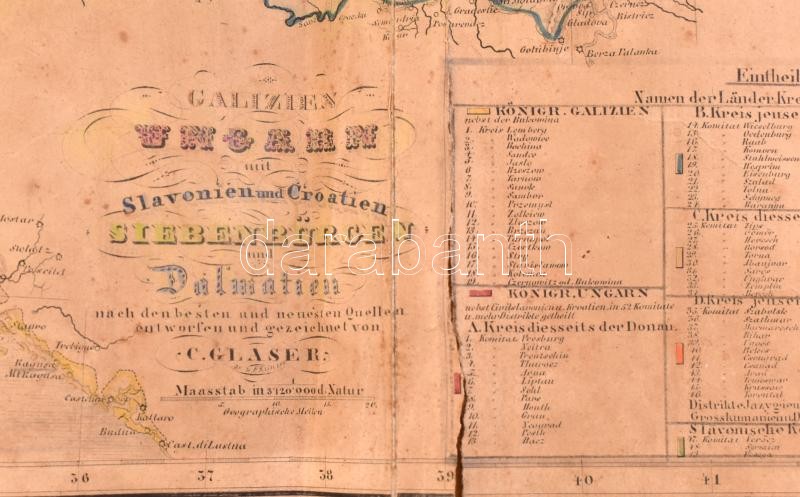 Gradestie
Passarovitz
Gladova
Bistricz
Gotubinje
Berza Palanka
GALIZIEN
UNGARN
mit
Slavonien und Croatien
SIEBENBÜRGEN
und
Dalmatien
nach den besten und neuesten Quellen
entworfen und gezeichnet von
C. GLÄSER.
Maasstab in 3'120'000 d. Natur
Geographische Meilen
Mostar
Stolatz
Trebigne
Ragusa
Castelnuovo
Kattaro
Budua
Cast. di Lastua
darabanth
Eintheil
Namen der Länder, Kre
KÖNIGR. GALIZIEN
nebst der Bukowina
1. Kreis Lemberg
2. Wadowice
3. Bochnia
4. Sandec
5. Jaslo
6. Rzeszow
7. Tarnow
8. Sanok
9. Sambor
10. Przemysl
11. Zolkiew
12. Zloczow
13. Brzezan
14. Tarnopol
15. Czortkow
16. Stry
17. Stanislawow
18. Kolomea
19. Czernowitz od. Bukowina
KÖNIGR. UNGARN
nebst Civil Slavonien u. Kroatien, in 52 Komitate
u. mehr Distrikte getheilt
A. Kreis diesseits der Donau.
1. Komitat Pressburg
2. Neitra
3. Trentschin
4. Thurocz
5. Arva
6. Liptau
7. Sohl
8. Bars
9. Honth
10. Gran
11. Neograd
12. Pesth
13. Bacz
B. Kreis jense
14. Komitat Wieselburg
15. Oedenburg
16. Raab
17. Komorn
18. Stuhlweissenb
19. Vesprim
20. Eisenburg
21. Szalad
22. Tolna
23. Schümeg
24. Baranya
C. Kreis diesse
25. Komitat Zips
26. Gömör
27. Hevesch
28. Borsod
29. Torna
30. Abaujvar
31. Saros
32. Unghvar
33. Zemplin
D. Kreis jenseit
35. Komitat Szabolsk
36. Szathmar
37. Marmarosch
38. Bihar
40. Bekes
41. Csongrad
42. Csanad
43. Arad
44. Temesvar
45. Krassov
46. Torontal
Distrikte Jazygien
Grosskumanien
Slavonische K
47. Komitat Veröcz
48. Syrmien
49. Posega
36 37 38 39 40 41